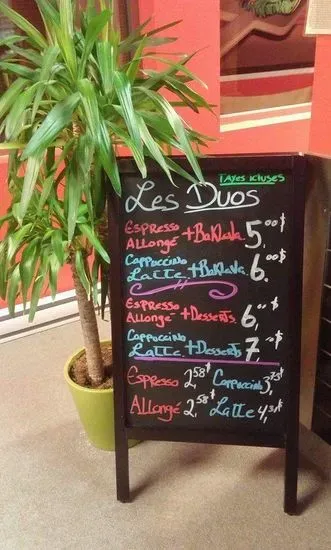 TAXES ICLUSES
Les Duos
Espresso
Allongé +BaKlava 5.00$
Cappuccino
Latte +BaKlava 6.00$
Espresso
Allongé +Desserts. 6.00$
Cappuccino
Latte +Desserts 7.00$
Espresso 2,58$ Cappuccino 3,75$
Allongé 2,58$ Latte